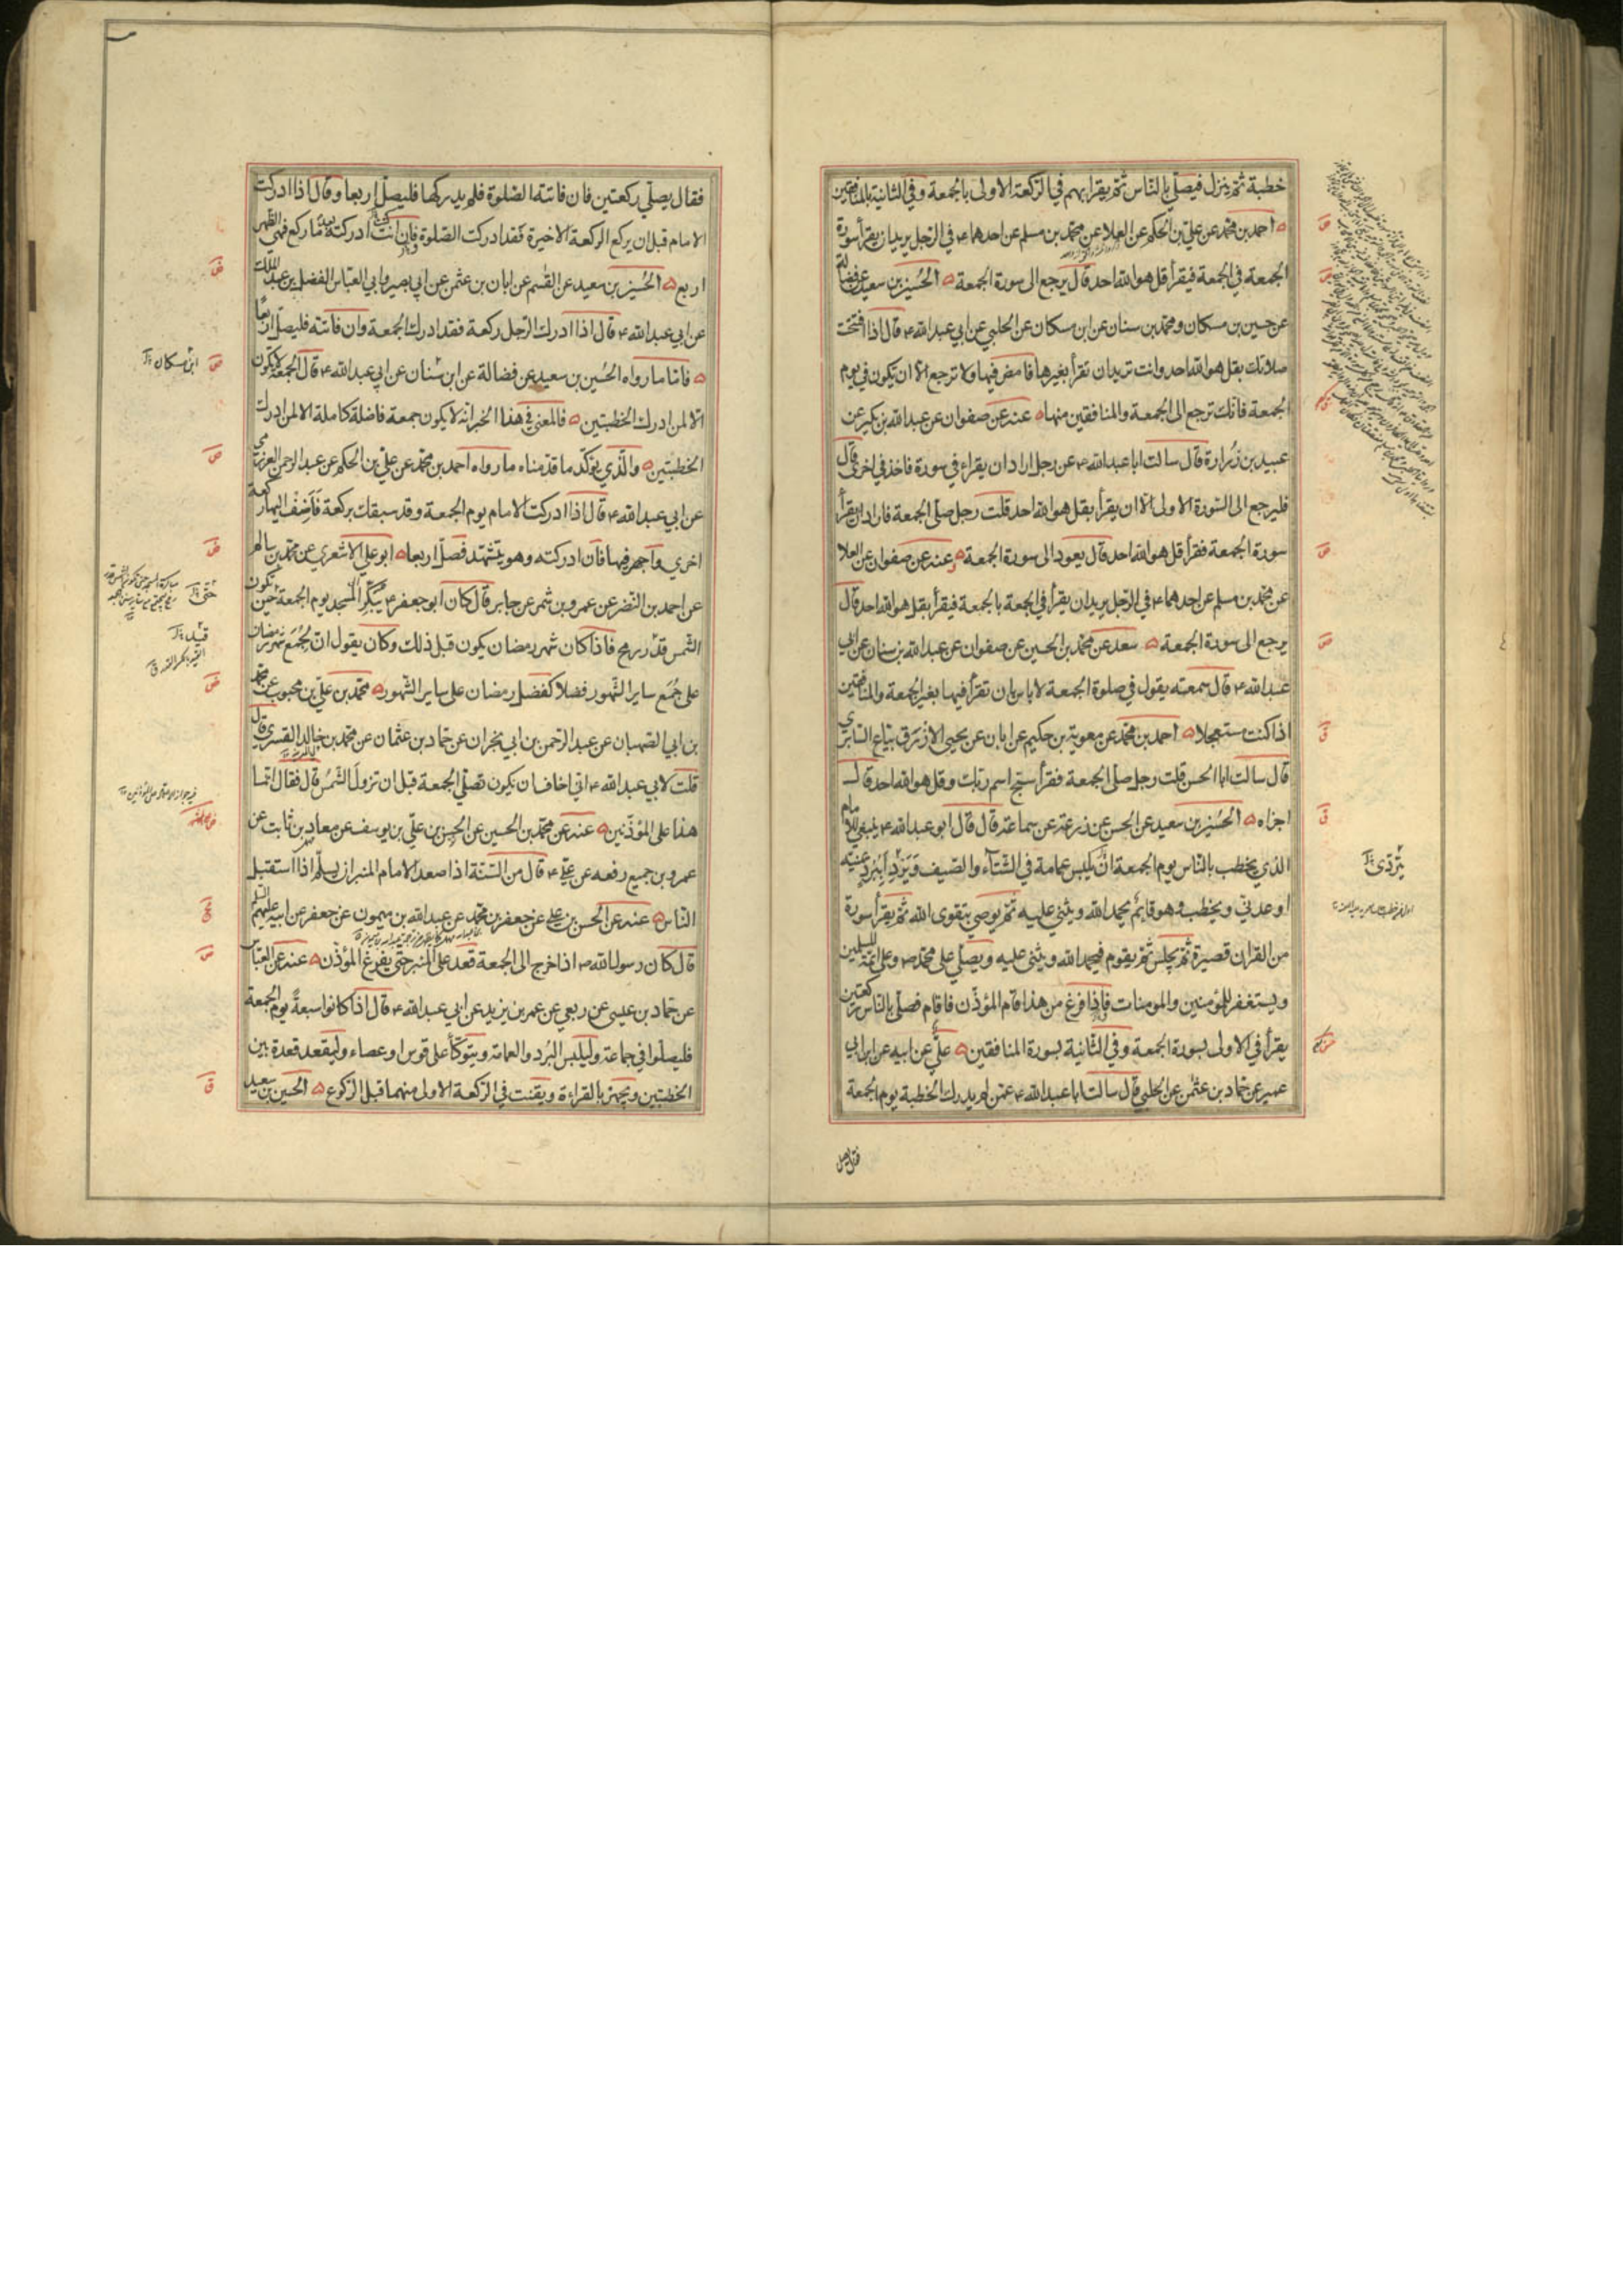 خطبة ثم ينزل فيصلي بالناس ثم يقرأ بهم في الركعة الاولى بالجمعة وفي الثانية بالمنافقين
احمد بن محمد عن علي بن الحكم عن العلا عن محمد بن مسلم عن احدهما ء في الرجل يريد ان يقرأ سورة
الجمعة في الجمعة فيقرأ قل هو الله احد قال يرجع الى سورة الجمعة ه الحسين بن سعيد عن فضالة
عن حسين بن مسكان ومحمد بن سنان عن ابن مسكان عن الحلبي عن ابي عبد الله ء قال اذا افتتحت
صلاتك بقل هو الله احد وانت تريد ان تقرأ بغيرها فامض فيها ولا ترجع الا ان تكون في يوم
الجمعة فانك ترجع الى الجمعة والمنافقين منها ه عنه عن صفوان عن عبد الله بن بكير عن
عبيد بن زرارة قال سالت ابا عبد الله ء عن رجل اراد ان يقراء في سورة فاخذ في اخرى قال
فليرجع الى السورة الاولى الا ان يقرأ بقل هو الله احد قلت رجل صلى الجمعة فاراد ان يقرأ
سورة الجمعة فقرأ قل هو الله احد قال يعود الى سورة الجمعة ه وعنه عن صفوان عن العلا
عن محمد بن مسلم عن احدهما ء في الرجل يريد ان يقرأ في الجمعة بالجمعة فيقرأ بقل هو الله احد قال
يرجع الى سورة الجمعة ه سعد عن محمد بن الحسين عن صفوان عن عبد الله بن سنان عن ابي
عبد الله ء قال سمعته يقول في صلوة الجمعة لا باس بان تقرأ فيها بغير الجمعة والمنافقين
اذا كنت مستعجلا ه احمد بن محمد عن معوية بن حكيم عن ابان عن يحيى الازرق بياع السابري
قال سالت ابا الحسن قلت رجل صلى الجمعة فقرأ سبح اسم ربك وقل هو الله احد قال
اجزاه ه الحسين بن سعيد عن الحسن عن زرعة عن سماعة قال قال ابو عبد الله ء ينبغي للامام
الذي يخطب بالناس يوم الجمعة ان يلبس عمامة في الشتاء والصيف ويتردى ببرد يمنية
او عدني ويخطب وهو قائم يحمد الله ويثني عليه ثم يوصي بتقوى الله ثم يقرأ سورة
من القران قصيرة ثم يجلس ثم يقوم فيحمد الله ويثني عليه ويصلي على محمد ص وعلى ائمة المسلمين
ويستغفر للمؤمنين والمومنات فاذا فرغ من هذا قام المؤذن فاقام فصلى بالناس ركعتين
يقرأ في الاولى بسورة الجمعة وفي الثانية بسورة المنافقين ه علي عن ابيه عن ابن ابي
عمير عن حماد بن عثمن عن الحلبي قال سالت ابا عبد الله ء عمن لم يدرك الخطبة يوم الجمعة
يتردى
فقال يصلي
فقال يصلي ركعتين فان فاتته الصلوة فلم يدركها فليصل اربعا وقال اذا ادركت
الامام قبل ان يركع الركعة الاخيرة فقد ادركت الصلوة فان انت ادركته بعد ما ركع فهي الظهر
اربع ه الحسين بن سعيد عن القسم عن ابان بن عثمن عن ابي بصير وابي العباس الفضل بن عبد الملك
عن ابي عبد الله ء قال اذا ادرك الرجل ركعة فقد ادرك الجمعة وان فاتته فليصل اربعا
ه فاما ما رواه الحسين بن سعيد عن فضالة عن ابن سنان عن ابي عبد الله ء قال الجمعة لا تكون
الا لمن ادرك الخطبتين ه فالمعنى في هذا الخبر انه لا يكون جمعة فاضلة كاملة الا لمن ادرك
الخطبتين ه والذي يؤكد ما قدمناه ما رواه احمد بن محمد عن علي بن الحكم عن عبد الرحمن العرزمي
عن ابي عبد الله ء قال اذا ادركت الامام يوم الجمعة وقد سبقك بركعة فاضف اليها ركعة
اخرى واجهر فيها فان ادركته وهو يتشهد فصل اربعا ه ابو علي الاشعري عن محمد بن سالم
عن احمد بن النضر عن عمرو بن شمر عن جابر قال كان ابو جعفر ء يبكر الى المسجد يوم الجمعة حين تكون
الشمس قدر رمح فاذا كان شهر رمضان يكون قبل ذلك وكان يقول ان لجمع شهر رمضان
على جمع ساير الشهور فضلا كفضل رمضان على ساير الشهور ه محمد بن علي بن محبوب عن محمد
بن ابي الصهبان عن عبد الرحمن بن ابي نجران عن حماد بن عثمان عن محمد بن خالد القسري قال
قلت لابي عبد الله ء اني اخاف ان يكون نصلي الجمعة قبل ان تزول الشمس قال فقال انما
هذا على المؤذنين ه عنه عن محمد بن الحسين عن الحسن بن علي بن يوسف عن معاد بن ثابت عن
عمرو بن جميع رفعه عن علي ء قال من السنة اذا صعد الامام المنبر ان يسلم اذا استقبل
الناس ه عنه عن الحسن بن علي عن جعفر بن محمد عن عبد الله بن ميمون عن جعفر عن ابيه عليهم السلم
قال كان رسول الله ص اذا خرج الى الجمعة قعد على المنبر حتى يفرغ المؤذن ه عنه عن العباس
عن حماد بن عيسى عن ربعي عن عمر بن يزيد عن ابي عبد الله ء قال اذا كانوا سبعة يوم الجمعة
فليصلوا في جماعة وليلبس البرد والعمامة ويتوكأ على قوس او عصاء وليقعد قعدة بين
الخطبتين ويجهر بالقراءة ويقنت في الركعة الاولى منهما قبل الركوع ه الحسين بن سعيد
ابن مسكان
حتى
قبل